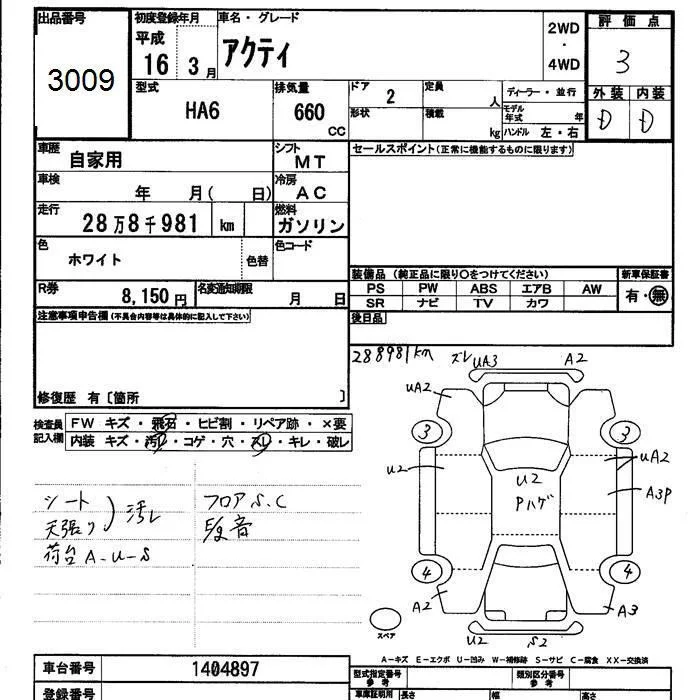 出品番号
3009
初度登録年月
平成
16 3月
車名・グレード
アクティ
2WD
・
4WD
評価点
3
外装 内装
D D
型式
HA6
排気量
660
CC
ドア
2
形状
定員
人
積載
kg
ディーラー・並行
モデル年式 年
ハンドル 左・右
車歴
自家用
シフト
MT
セールスポイント(正常に機能するものに限ります)
車検
年 月( 日)
冷房
AC
走行
28万8千981 km
燃料
ガソリン
色
ホワイト
色替
色コード
R券
8,150円
名変通知期限
月 日
装備品 (純正品に限り○をつけてください)
PS PW ABS エアB AW
SR ナビ TV カワ
新車保証書
有・無
後日品
注意事項申告欄(不具合内容等は具体的に記入して下さい)
修復歴 有〔箇所 〕
検査員
記入欄
FW キズ・飛石・ヒビ割・リペア跡・×要
内装 キズ・汚レ・コゲ・穴・スレ・キレ・破レ
シート
天張り
汚レ
荷台 A-U-S
フロアS.C
E/g音
288981km
ズレ UA3 A2
UA2
3 3
U2
U2
Pハゲ
UA2
A3P
4 4
A2 A3
U2 S2
スペア
A-キズ E-エクボ U-凹み W-補修跡 S-サビ C-腐食 XX-交換済
車台番号
1404897
登録番号
型式指定番号
参考
類別区分番号
参考
車庫証明用
長さ 幅 高さ